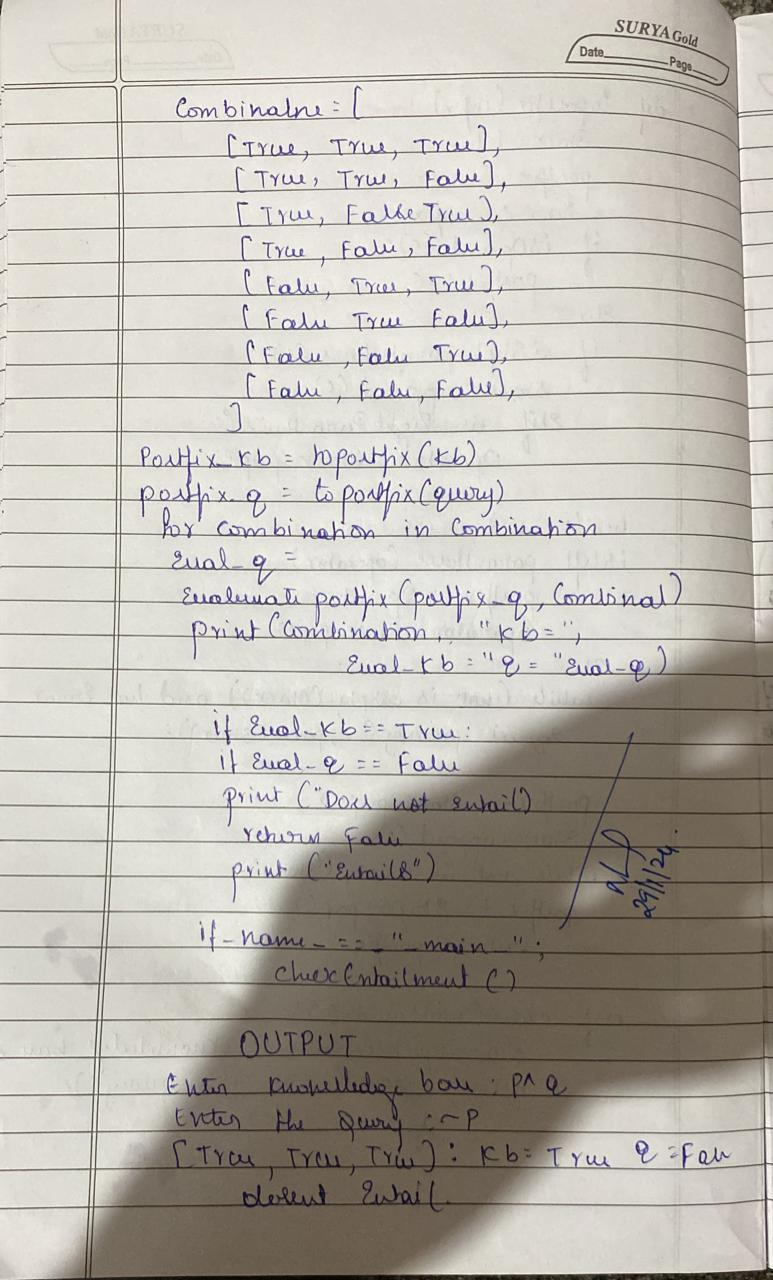 SURYA Gold
Date Page
Combinatne = [
[True, True, True],
[True, True, False],
[True, False True],
[True, False, False],
[False, True, True],
[False True False],
[False, False True],
[False, False, False],
]
Postfix_kb = topostfix(kb)
postfix_q = to postfix(query)
for combination in combination
Eval_q =
Evaluate postfix (postfix_q, Combinal)
print (Combination, "kb=",
Eval_kb = "q = "Eval_q)
if Eval_kb == True:
if Eval_q == False
print ("Does not entail)
return False
print ("Entails")
29/11/24.
if _name_ == _"_main_":
check Entailment ()
OUTPUT
Enter knowelledge base : p^q
Enter the Query : ~P
[True, True, True] : Kb = True q = False
dosent Entail.